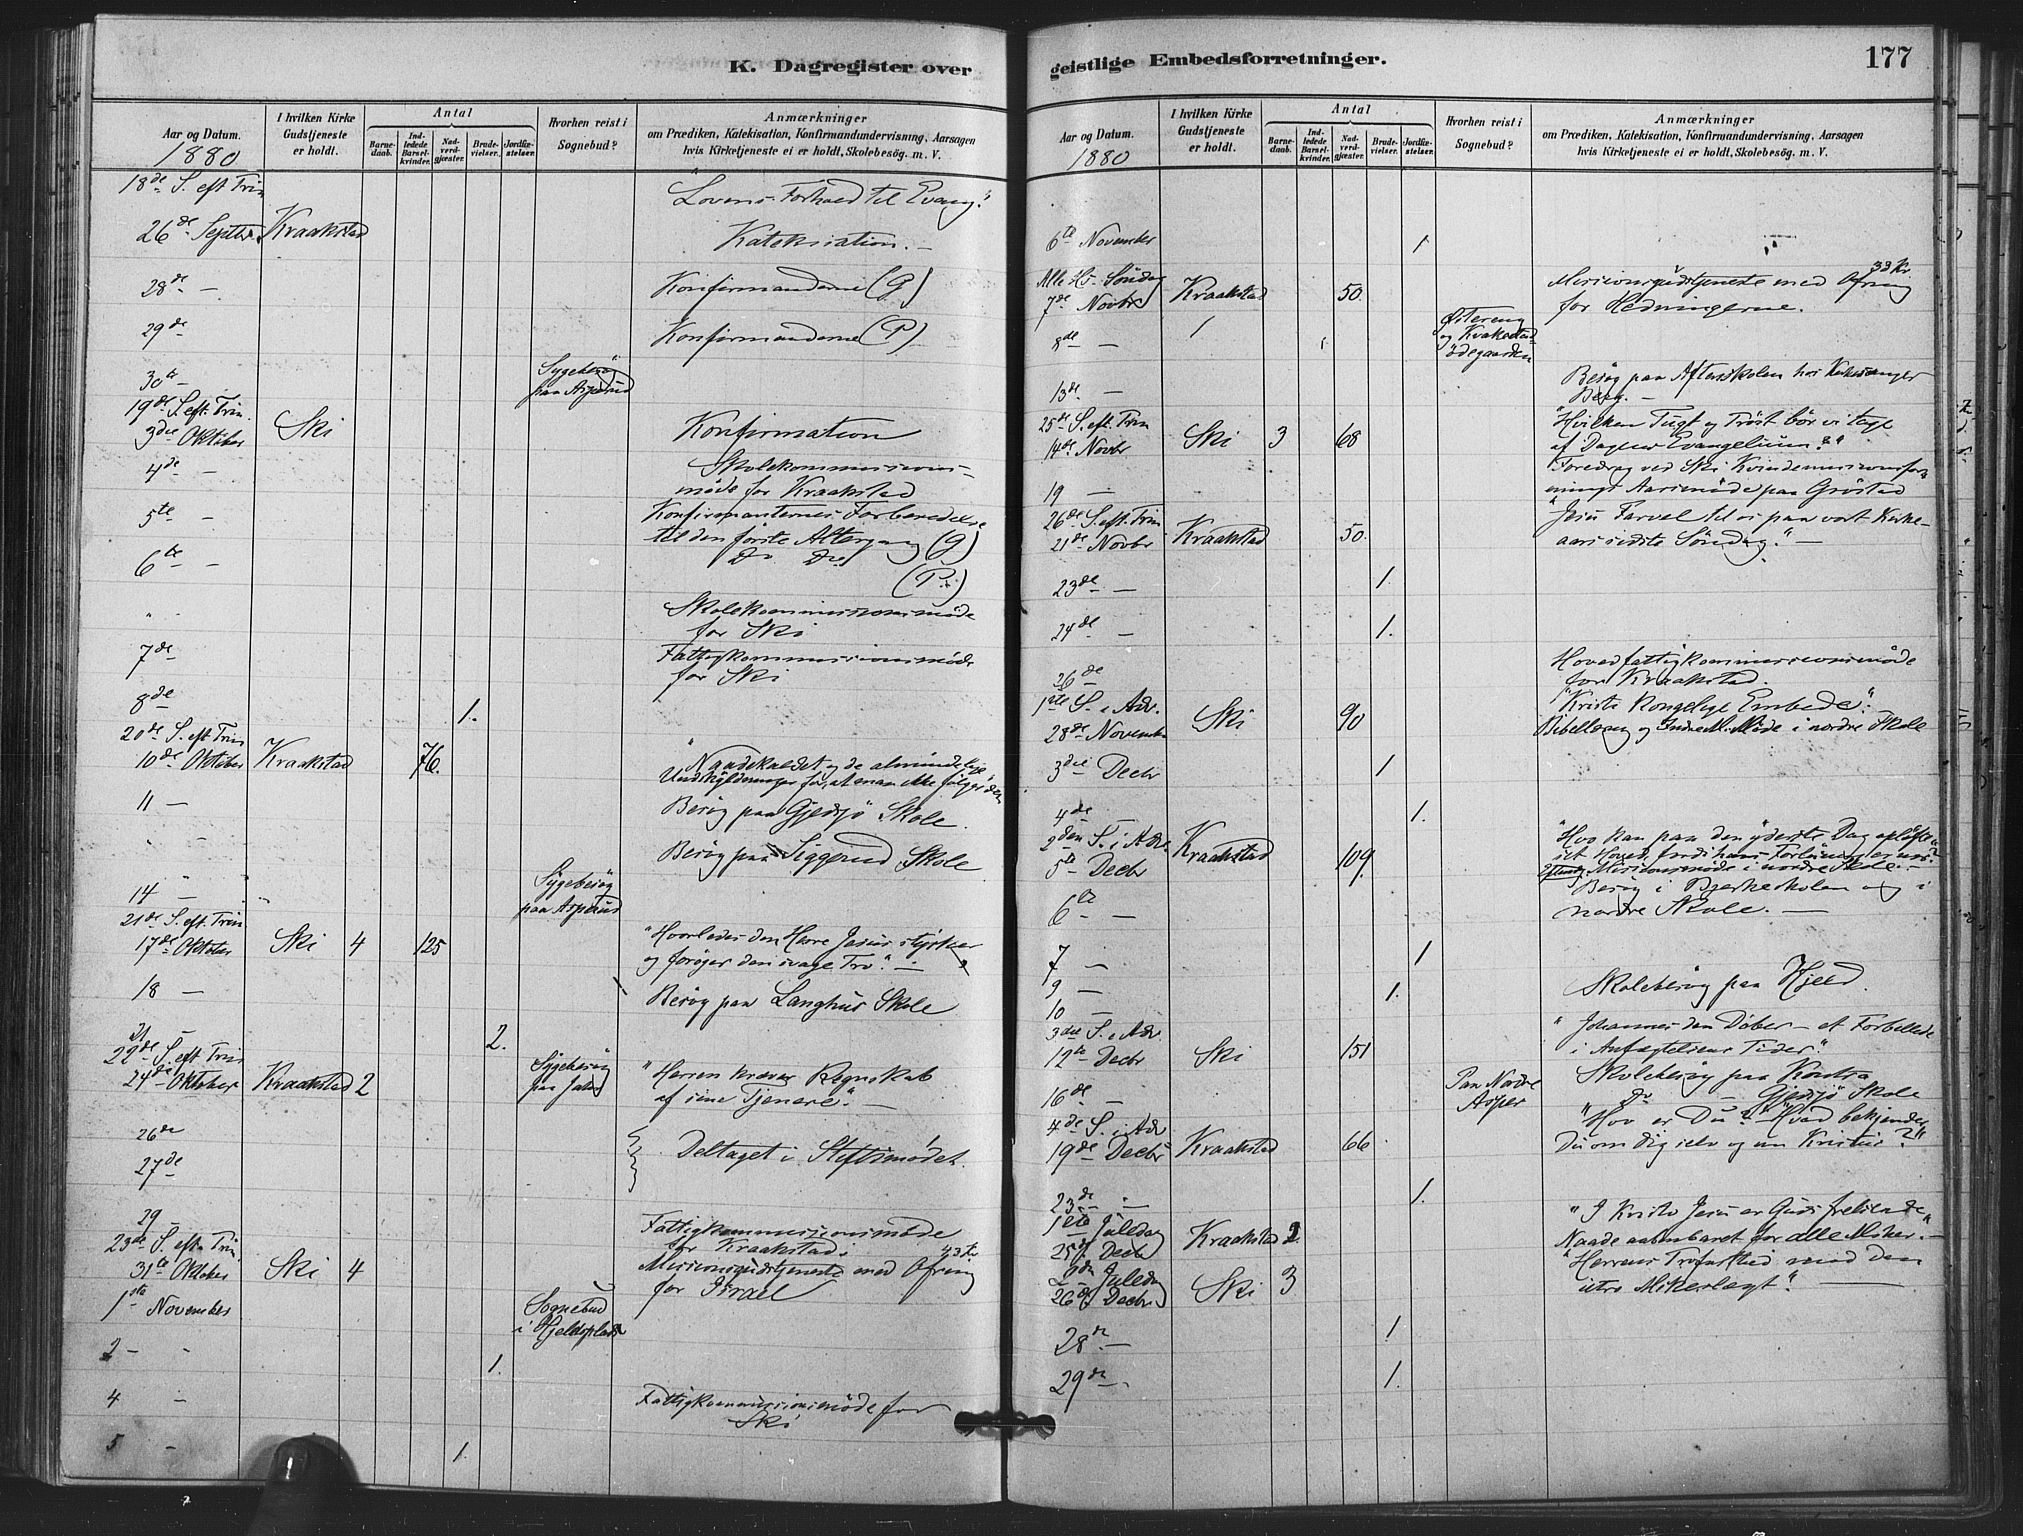 K. Dagregister over
Aar og Datum.
1880
I hvilken Kirke
Gudstjeneste
er holdt.
Antal
Barne-
daab.
Ind-
ledede
Barsel-
kvinder.
Nad-
verd-
gjæster.
Brude-
vielser.
Jordfæ-
stelser.
Hvorhen reist i
Sognebud?
Anmærkninger
om Prædiken, Katekisation, Konfirmandundervisning, Aarsagen
hvis Kirketjeneste ei er holdt, Skolebesøg. m. V.
18de S. eft Trin "Lovens Forhold til Evang."
26de Septbr. Kraakstad Katekisation. —
28de — Konfirmanderne (G)
29de Konfirmanderne (P)
30te — Sygebesøg
paa Asperud
19de S. eft. Trin.
3die Oktober Ski Konfirmation
4de — Skolekommissions-
møde for Kraakstad
5te — Konfirmanternes Forberedelse
til den første Altergang (G)
6te — Do Do
(P.)
" Skolekommissionsmøde
for Ski
7de Fattigkommissionsmøde
for Ski
8de 1.
20de S. eft Trin
10de Oktober Kraakstad 76. "Naadekaldet og de almindelige
Undskyldninger for, at man ikke følger det
11 — Besøg paa Gjedsjø Skole.
" Besøg paa Siggerud Skole
14 — Sygebesøg
paa Asperud
21de S. eft. Trin
17de Oktober Ski 4 125 "Hvorledes den Herre Jesus styrker
og forøger den svage Tro." —
18 — Besøg paa Langhus Skole
21 — 2.
22de S. eft Trin
24de Oktober Kraakstad 2 Sygebesøg
"Herren kræver Regnskab
af sine Tjenere." —
26de
27de Deltaget i Stiftsmødet.
29 — Fattigkommissionsmøde
for Kraakstad.
23de S. eft. Trin
31te Oktober Ski 4 Missionsgudstjeneste med Ofring
for Israel
1ste November Sognebud
i Hjeldspladse
2 — 1.
4 — Fattigkommissionsmøde for
Ski
5 — 1.
geistlige Embedsforretninger.
177
Aar og Datum.
1880
I hvilken Kirke
Gudstjeneste
er holdt.
Antal
Barne-
daab.
Ind-
ledede
Barsel-
kvinder.
Nad-
verd-
gjæster.
Brude-
vielser.
Jordfæ-
stelser.
Hvorhen reist i
Sognebud?
Anmærkninger
om Prædiken, Katekisation, Konfirmandundervisning, Aarsagen
hvis Kirketjeneste ei er holdt, Skolebesøg. m. V.
6te November 1
Alle H. Søndag 33 Kr.
7de Novbr Kraakstad 50. Missionsgudstjeneste med Ofring
for Hedningerne.
8de — Østereng
og Kraakstad
ødegaarden
13de — Besøg paa Aftenskolen hos Kirkesanger
Berg. —
25de S. eft. Trin "Hvilken Tugt og Trøst bør vi tage
14de Novbr Ski 3 68 af Dagens Evangelium?"
19 — Foredrag ved Ski Kvindemissionsfor-
enings Aarsmøde paa Grøstad
26de S. eft. Trin "Jesu Farvel til os paa vort Kirke-
21de Novbr Kraakstad 50. aars sidste Søndag." —
23de — 1.
24de — 1.
26de Hovedfattigkommissionsmøde
for Kraakstad.
1ste S. i Adv. "Kristi Kongelige Embede".
28de November Ski 90 Bibellæsng og Indre M. Møde i nordre Skole
3die Decbr 1
4de 1.
2den S. i Adv. "Hvo kan paa den yderste Dag opløfte
5te Decbr Kraakstad 109. sit Hoved, fordi hans Forløsning er nær?
Missionsmøde i nordre Skole.
6te — Besøg i Bjerkeskolen og i
nordre Skole. —
7 — 1
9 — 1. Skolebesøg paa Hjeld.
10 —
3die S. i Adv. "Johannes den Døber — et Forbillede
12te Decbr Ski 151 i Anfægtelsens Tider"
16de — Paa Nordre
Asper Skolebesøg paa Kontra
Do — Gjedsjø Skole
4de S. i Adv "Hvo er Du? Hvad bekjender
19de Decbr Kraakstad 66 Du om dig selv og om Kristus?"
23de — 1.
1ste Juledag "I Kristo Jesu er Guds frelsende
25de Decbr Kraakstad Naade aabenbaret for alle Msker." —
2den Juledag "Herrens Trofasthed mod den
26de Decbr Ski 3 utro Mskeslægt". —
28de — 1.
29de — 1.